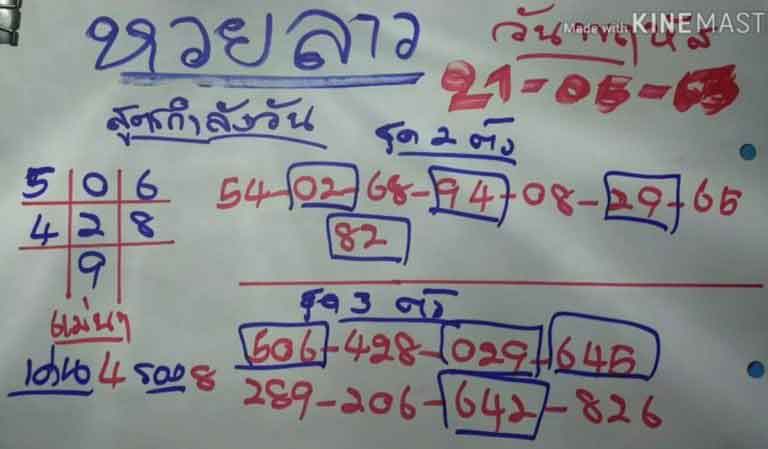 Made with KINEMASTER
หวยลาว
วันพฤหัส
21-05-63
สูตรกำลังวัน
ชุด 2 ตัว
5 0 6
4 2 8
9
54-02-68-94-08-29-65
82
แม่นๆ
เด่น 4 รอง 8
ชุด 3 ตัว
506-428-029-645
289-206-642-826